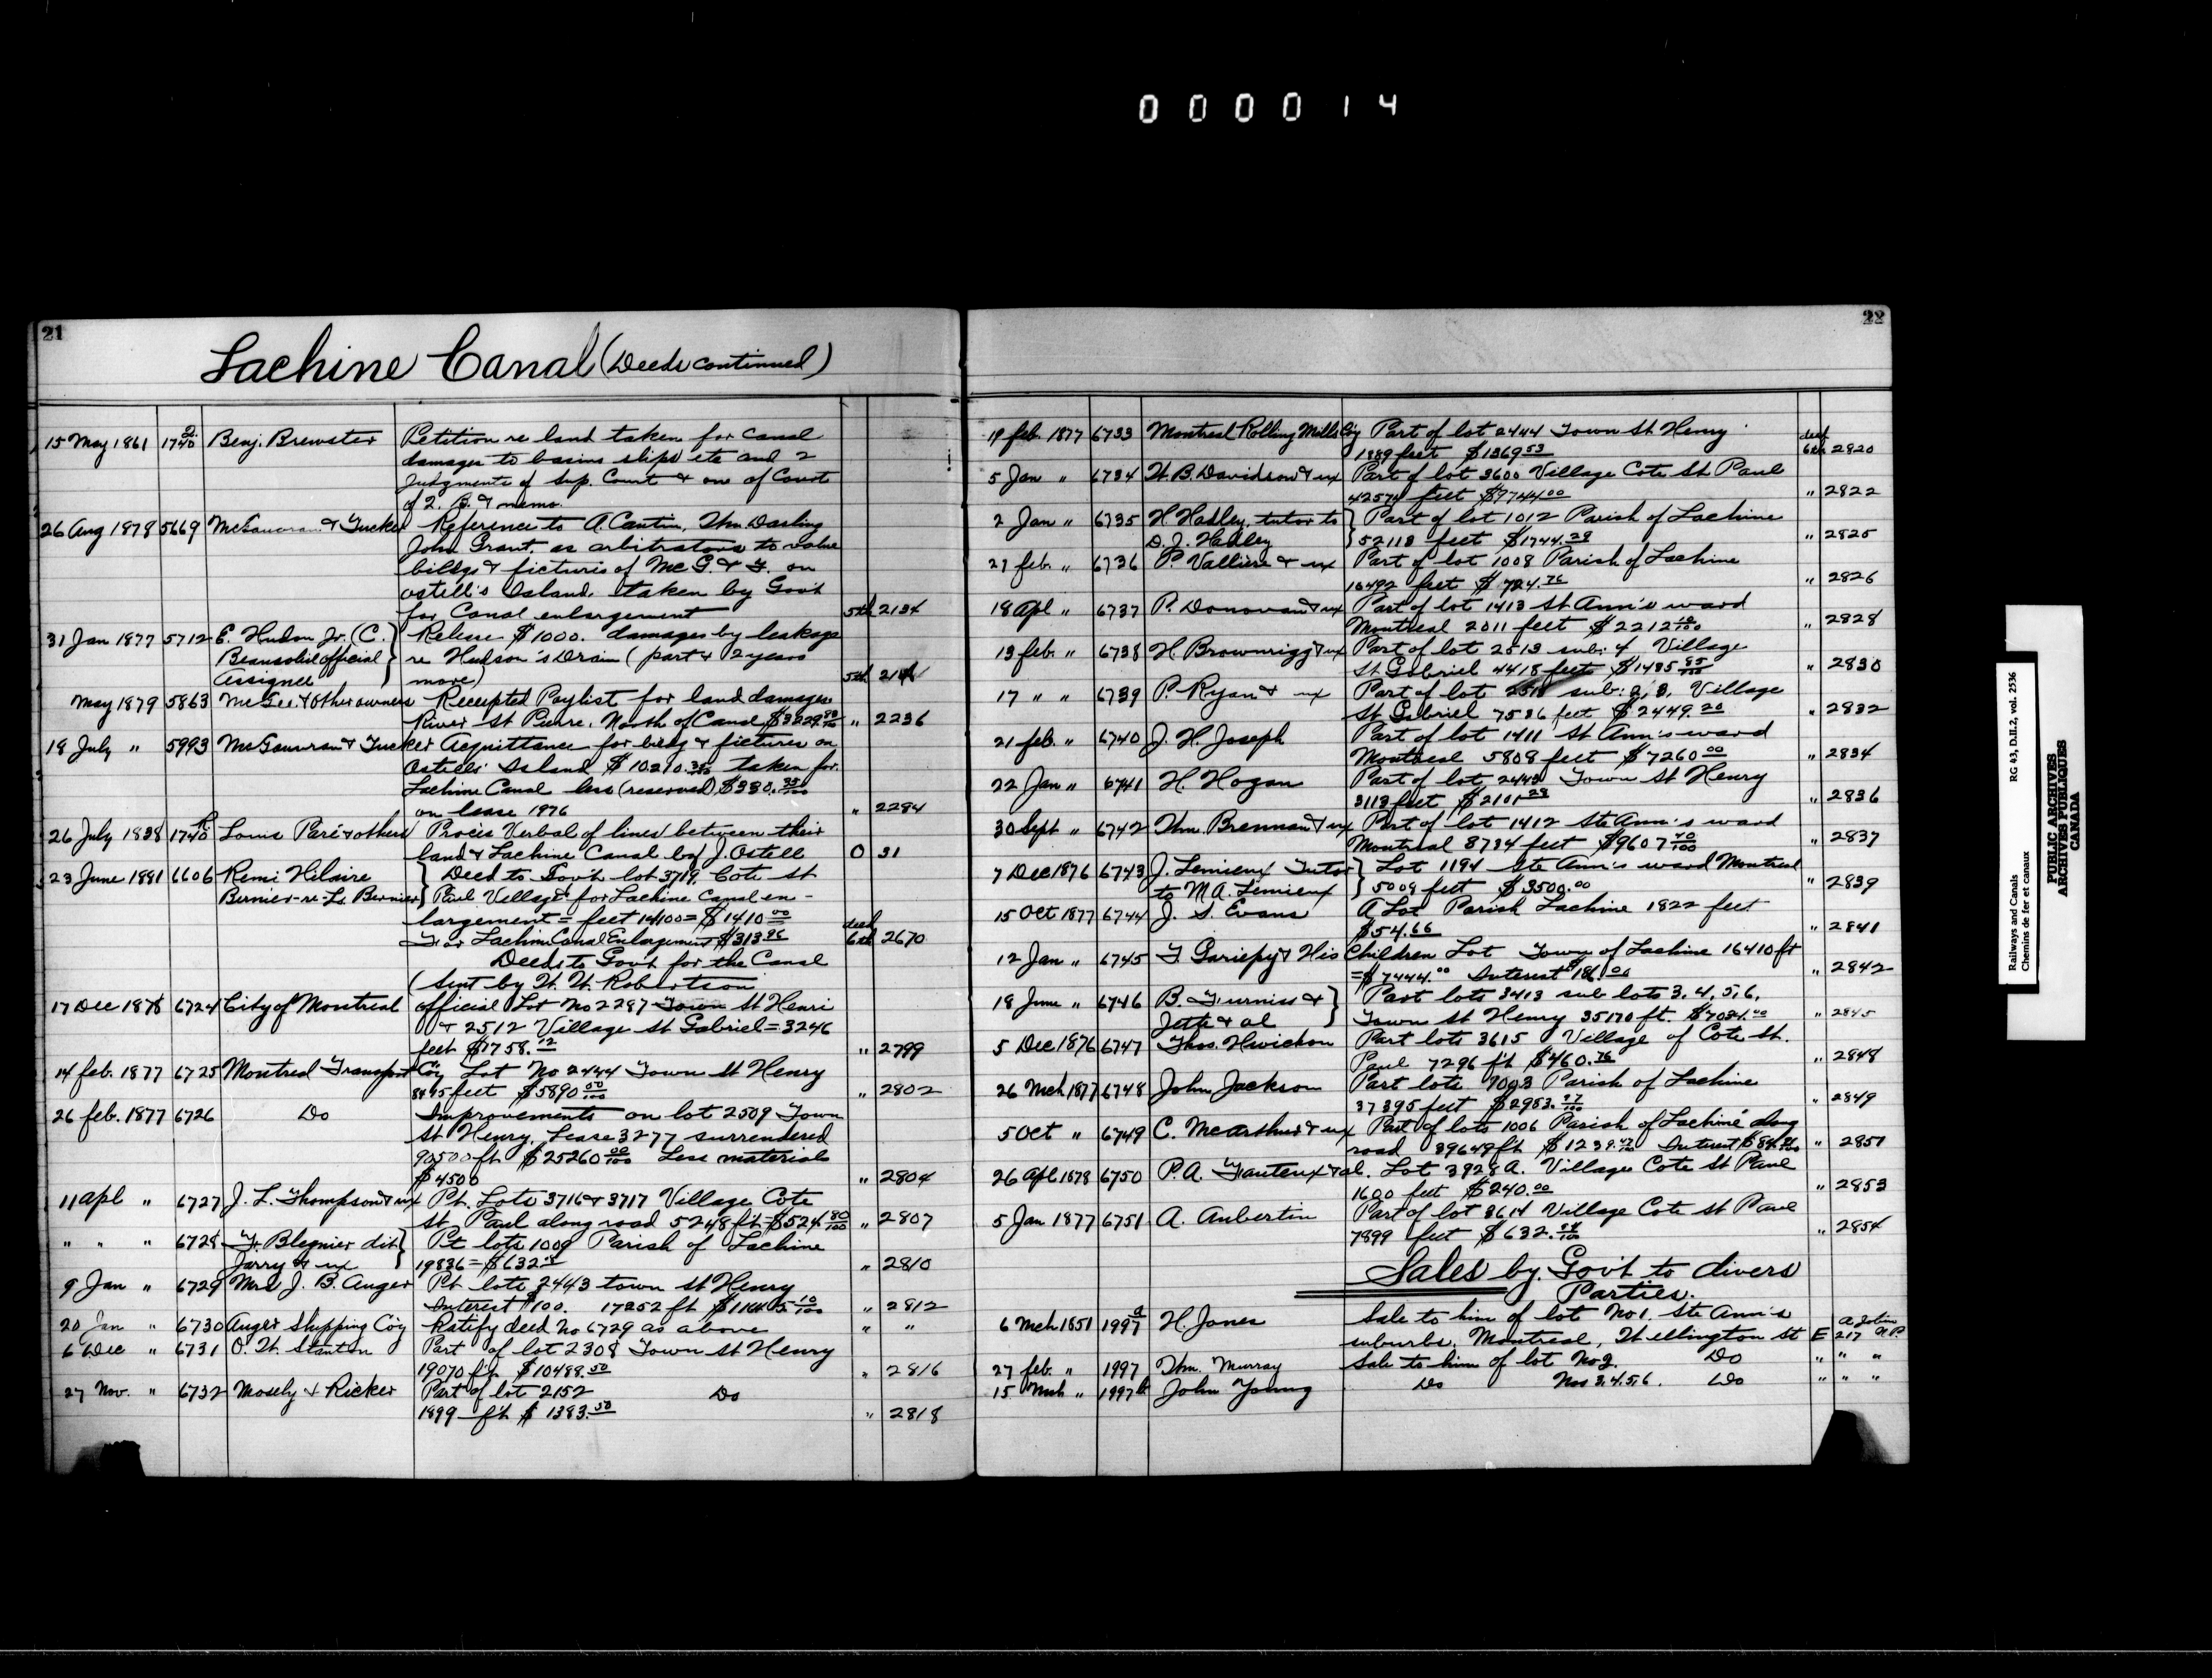 000014
21
Lachine Canal (Deeds continued)
15 May 1861 1740 2 Benj. Brewster Petition re land taken for canal
damages to basins slips etc and 2
Judgments of Sup. Court & one of Court
of Q. B. & memo.
26 Aug 1878 5669 McGauvran & Tucker Reference to A. Cantin, Wm. Darling
John Grant. as arbitrators to value
bildgs & fictures of McG. & T. on
Ostell's Island. taken by Gov't
for Canal enlargement 5th 2134
31 Jan 1877 5712 E. Hudon Jr. (C. Release $1000. damages by leakage
Beausoliel official re Hudson's Drain (part & 2 years
Assignee more) 5th
May 1879 5863 McGee & other owners Receipted Paylist for land damages
River St Pierre. North of Canal " 2236
18 July " 5993 McGauvran & Tucker Acquittance for bildg & fictures on
Ostells' Island $10210.35/100 taken for
Lachine Canal less (reserved) $380.35/100
on lease 1976 " 2284
26 July 1838 1740 Louis Paré & others Procès Verbal of lines between their
land & Lachine Canal by J. Ostell O 31
23 June 1881 6606 Remi Hilaire Deed to Gov't lot 3719. Cote St
Bernier - re - Ls. Bernier Paul Village for Lachine Canal en-
largement = feet 14100 = $1410 00/100
For Lachine Canal Enlargement $313.96 deed 6th 2670
Deeds to Gov't for the Canal
(sent by W. W. Robertson
17 Dec 1876 6724 City of Montreal official Lot No 2287 Town St Henri
& 2512 Village St Gabriel = 3246
feet $1758.12 " 2799
14 feb. 1877 6725 Montreal Transport Coy Lot No 2444 Town St Henry
8495 feet $5890 00/100 " 2802
26 feb. 1877 6726 Do Improvements on lot 2509 Town
St Henry. Lease 3277 surrendered
90500 ft $25260 00/100 Less materials
$4500 " 2804
11 Apl " 6727 J. L. Thompson & ux Pt. Lots 3716 & 3717 Village Cote
St. Paul along road 5248 ft = $524 80/100 " 2807
" " " 6728 F. Blegnier dit Pt lots 1009 Parish of Lachine
Jarry & ux 19836 = $632 " 2810
9 Jan " 6729 Mrs J. B. Auger Pt lots 2443 town St Henry
Interest $100. 17252 ft " 2812
20 Jan " 6730 Auger Shipping Coy Ratify deed No 6729 as above " "
6 Dec " 6731 O. W. Stanton Part of lot 2308 Town St Henry
19070 ft $10488.50 " 2816
27 Nov. " 6732 Mosely & Ricker Part of lot 2152 Do
1899 ft $1383.50 " 2818
22
19 feb. 1877 6733 Montreal Rolling Mills Coy Part of lot 2444 Town St Henry
1889 feet $1369 53 deed 6th 2820
5 Jan " 6734 W. B. Davidson & ux Part of lot 3600 Village Cote St Paul
42574 feet $9744 00 " 2822
2 Jan " 6735 H. Hadley, tutor to Part of lot 1012 Parish of Lachine
D. J. Hadley 52118 feet $1744.28 " 2825
27 feb. " 6736 P. Vallière & ux Part of lot 1008 Parish of Lachine
16492 feet $724.76 " 2826
18 Apl " 6737 P. Donovan & ux Part of lot 1413 St Ann's ward
Montreal 2011 feet $2212 10/100 " 2828
13 feb. " 6738 H. Brownrigg & ux Part of lot 2513 sub: 4 Village
St Gabriel 4418 feet $1435 85/100 " 2830
17 " " 6739 P. Ryan & ux Part of lot sub: 2, 3. Village
St Gabriel 7536 feet $2449.20 " 2832
21 feb. " 6740 J. H. Joseph Part of lot 1411 St Ann's ward
Montreal 5808 feet $7260 00 " 2834
22 Jan " 6741 H. Hogan Part of lot Town St Henry
3113 feet $2101 28 " 2836
30 Sept " 6742 Wm. Brennan & ux Part of lot 1412 Ste Ann's ward
Montreal 8734 feet $9607 40/100 " 2837
7 Dec 1876 6743 J. Lemieux Tutor Lot 1194 Ste Ann's ward Montreal
to M. A. Lemieux 5009 feet $3500.00 " 2839
15 Oct 1877 6744 J. S. Evans A Lot Parish Lachine 1822 feet
$54.66 " 2841
12 Jan " 6745 F. Gariepy & His Children Lot Town of Lachine 16410 ft
= $7444.00 Interest $186.00 " 2842
18 June " 6746 B. Furniss & Part lots 3413 sub lots 3. 4. 5. 6.
Jette & al Town St Henry 35170 ft. $7034.00 " 2845
5 Dec 1876 6747 Thos. Hwickon Part lots 3615 Village of Cote St.
Paul 7296 ft $460.76 " 2848
26 Mch 1877 6748 John Jackson Part lots Parish of Lachine
37395 feet $2953.97/100 " 2849
5 Oct " 6749 C. McArthur & ux Part of lots 1006 Parish of Lachine along
road 39649 ft Interest " 2851
26 Apl 1878 6750 P. A. Fauteux & al. Lot 3928 A. Village Cote St Paul
1600 feet $240.00 " 2853
5 Jan 1877 6751 A. Aubertin Part of lot 3614 Village Cote St Paul
7899 feet $632. " 2854
Sales by Gov't to divers
Parties.
6 Mch. 1851 1997 a H. Jones Sale to him of lot No 1. Ste Ann's
suburbs. Montreal, Wellington St E 217 A Jobin N.P.
27 feb. " 1997 Wm. Murray Sale to him of lot No 2. Do " " "
15 Mch " 1997 b John Young Do Nos 3. 4. 5. 6. Do " " "
Railways and Canals RG 43, D.II.2, vol. 2536
Chemins de fer et canaux
PUBLIC ARCHIVES
ARCHIVES PUBLIQUES
CANADA